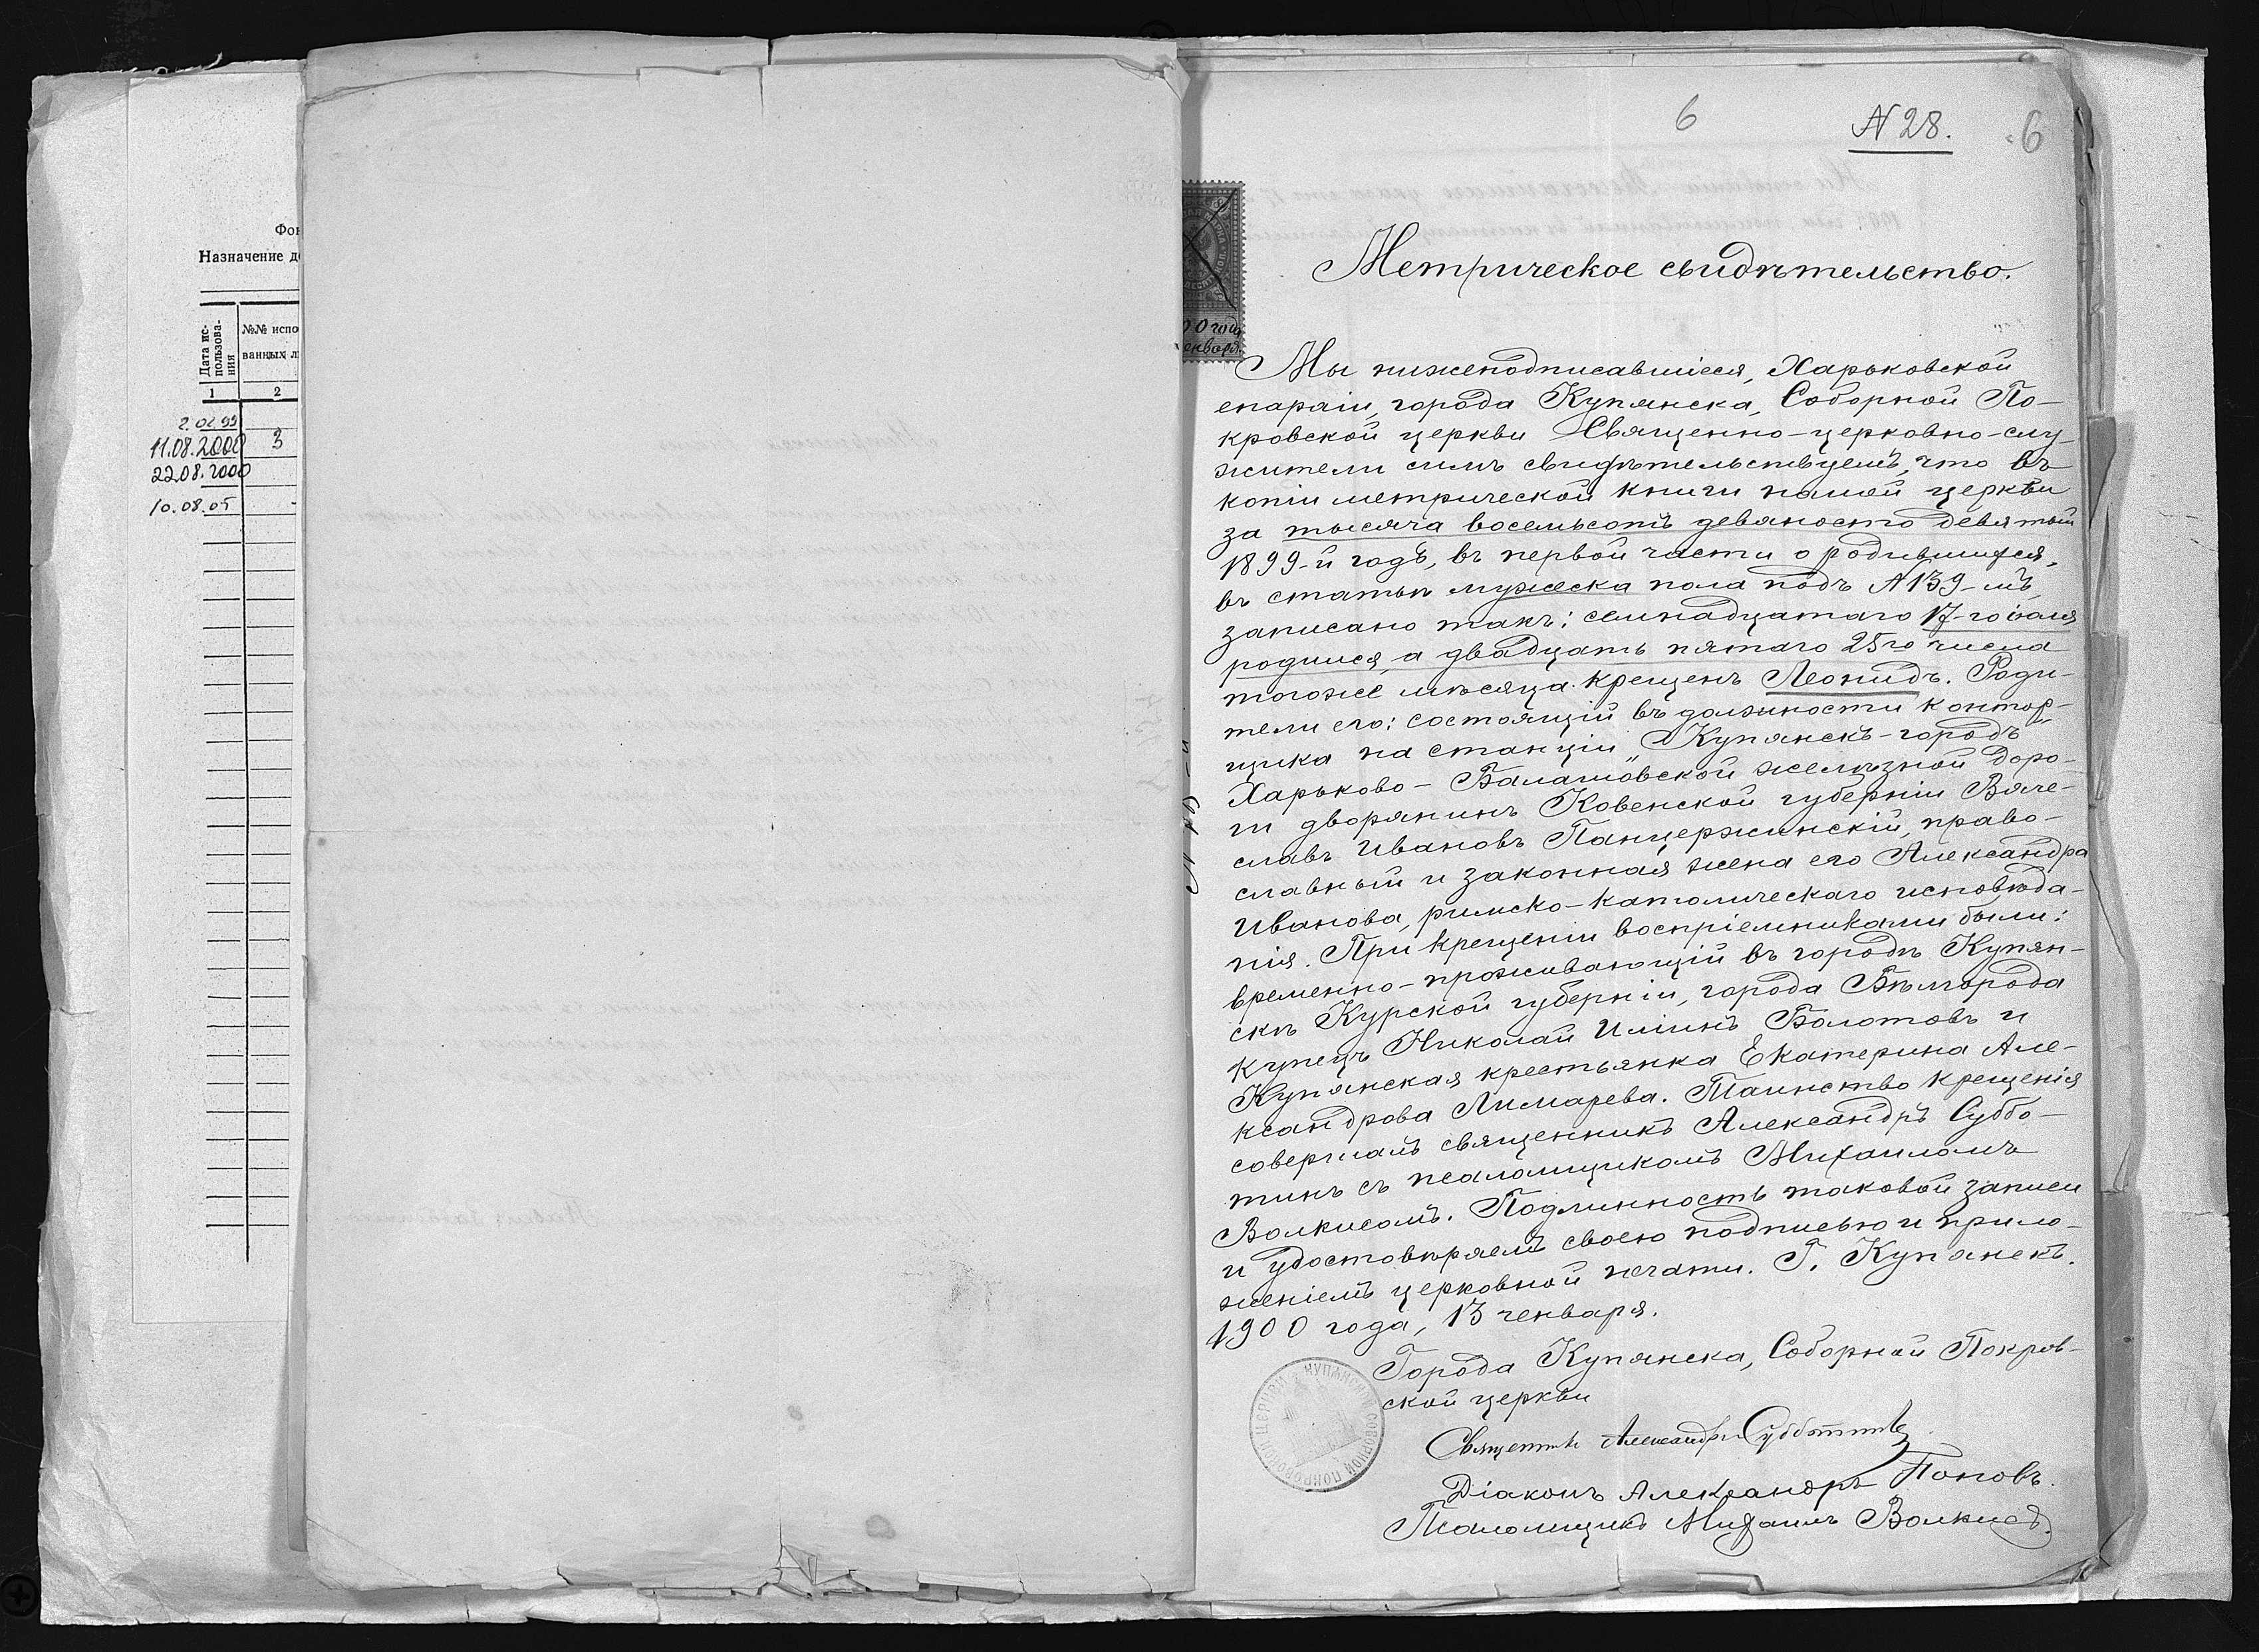 Фон
Назначение д
Дата ис-
пользова-
ния
№№ испо
ванных л
1
2
2.02.99
11.08.2000 3
22.08.2000
10.08.05
6
N 28.
6
00 года
енваря.
Метрическое свидѣтельство.
Мы нижеподписавшіеся, Харьковской
епархіи, города Купянска, Соборной По-
кровской церкви Священно-церковно-слу-
жители симъ свидѣтельствуемъ, что въ
копіи метрической книги нашей церкви
за тысяча восемьсотъ девяносто девятый
1899-й годъ, въ первой части о родившихся,
въ статьѣ мужеска пола подъ N 139-мъ,
записано такъ: семнадцатаго 17-го іюля
родился, а двадцать пятаго 25го числа
тогоже мѣсяца крещенъ Леонидъ. Роди-
тели его: состоящій въ должности контор-
щика на станціи „Купянскъ-городъ"
Харьково-Балашовской желѣзной доро-
ги дворянинъ Ковенской губерніи Вяче-
славъ Ивановъ Панцержинскій, право-
славный и законная жена его Александра
Иванова, римско-католическаго исповѣда-
нія. При крещеніи воспріемниками были:
временно-проживающій въ городѣ Купян-
скѣ Курской губерніи, города Бѣлгорода
купецъ Николай Иліинъ Болотовъ и
Купянская крестьянка Екатерина Але-
ксандрова Лимарева. Таинство крещенія
совершалъ священникъ Александръ Суббо-
тинъ съ псаломщикомъ Михаиломъ
Волкисомъ. Подлинность таковой записи
и удостовѣряемъ своею подписью и прило-
женіемъ церковной печати. Г. Купянскъ.
1900 года, 13 генваря.
Города Купянска, Соборной Покров-
ской церкви
Священникъ Александръ Субботинъ
Діаконъ Александръ Поповъ.
Псаломщикъ Михаилъ Волкисъ.
КУПЯНСКОЙ СОБОРНОЙ ПОКРОВСКОЙ ЦЕРКВИ